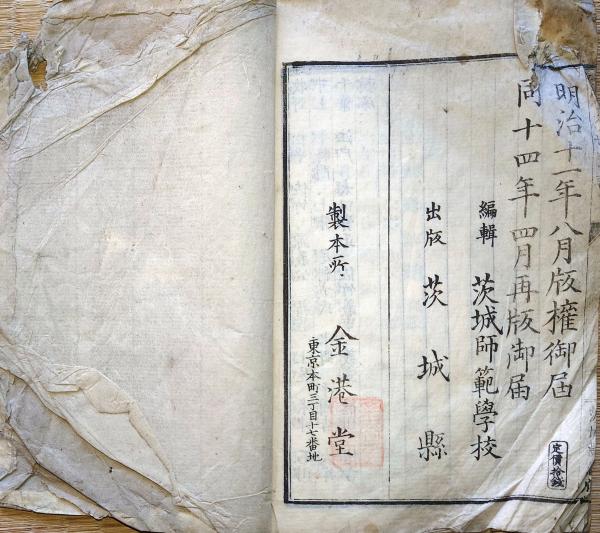 明治十一年八月版權御届
同十四年四月再版御届
編輯 茨城師範學校
出版 茨城縣
製本所 金港堂
東京本町三丁目十七番地
定價拾錢